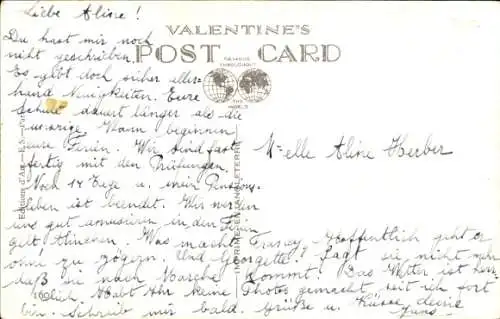 Liebe Aline!
VALENTINE'S
POST CARD
FAMOUS THROUGHOUT
THE WORLD
Du hast mir noch
nicht geschrieben.
Es gibt doch sicher aller-
hand Neuigkeiten. Eure
Schule dauert länger als die
unsrige. Wann beginnen
eure Ferien. Wir sind fast
fertig mit den Prüfungen.
Noch 14 Tage u. mein Pensions-
leben ist beendet. Wir werden
uns gut amusieren in den Ferien
gelt, Alinchen. Was macht
ohne zu zögern. Und Georgette? Sagt sie nicht
daß sie nach kommt! Das Wetter ist
lich. Habt Ihr keine Photos gemacht seit ich fort
bin. Schreib mir bald. Grüße u. Küsse deine
Melle Aline Herber
Hoffentlich geht er
Editions d'Art